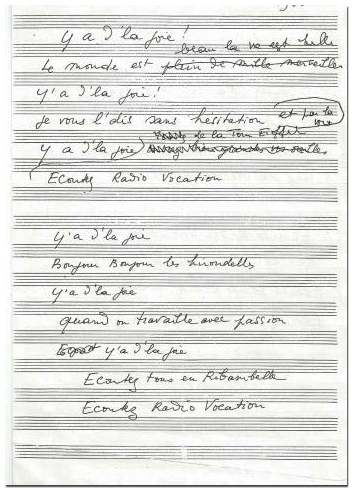 y a d'la joie !
beau la vie est belle
Le monde est plein de mille merveilles
Y'a d'la joie !
Je vous l'dis sans hésitation et par la
voix
de la Tour Eiffel
y a d'la joie
Ecoutez Radio Vocation
Y'a d'la joie
Bonjour Bonjour les hirondelles
Y'a d'la joie
quand on travaille avec passion
y'a d'la joie
Ecoutez tous en Ribambelle
Ecoutez Radio Vocation